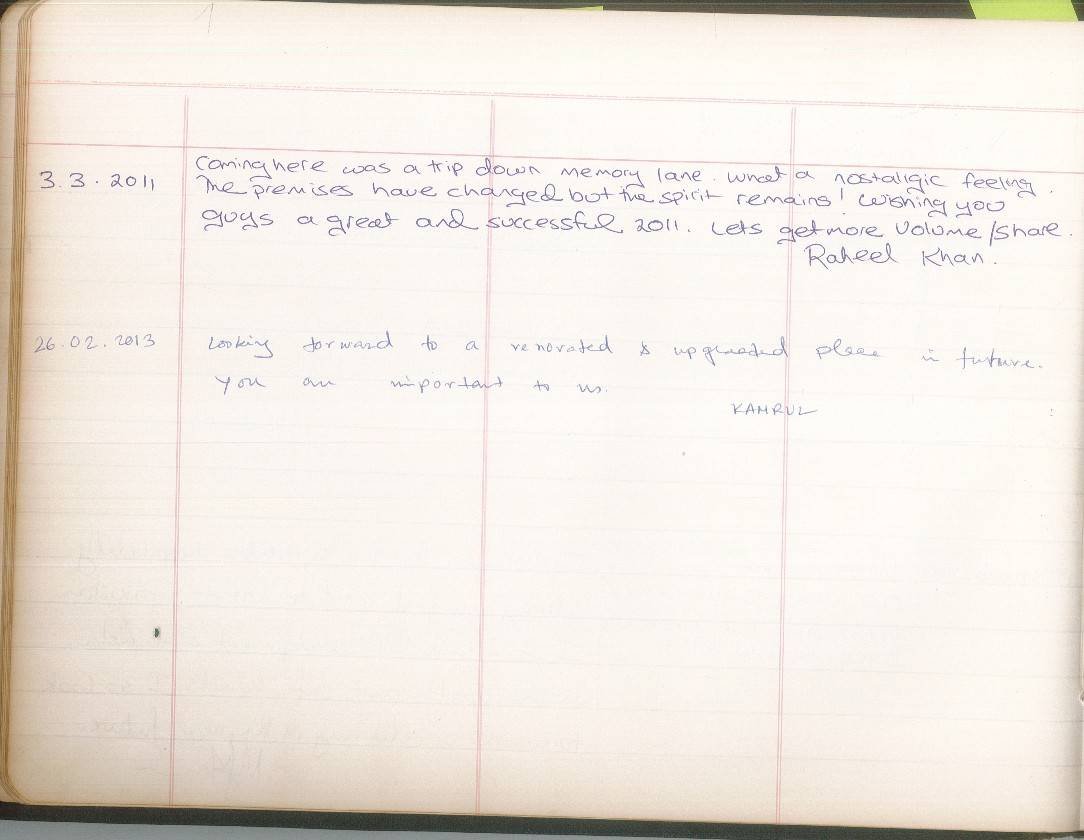 3.3.2011 Coming here was a trip down memory lane. What a nostalgic feeling.
The premises have changed but the spirit remains! Wishing you
guys a great and successful 2011. Lets get more Volume/share.
Raheel Khan.
26.02.2013 Looking forward to a renovated & upgraded place in future.
You are important to us.
KAMRUL